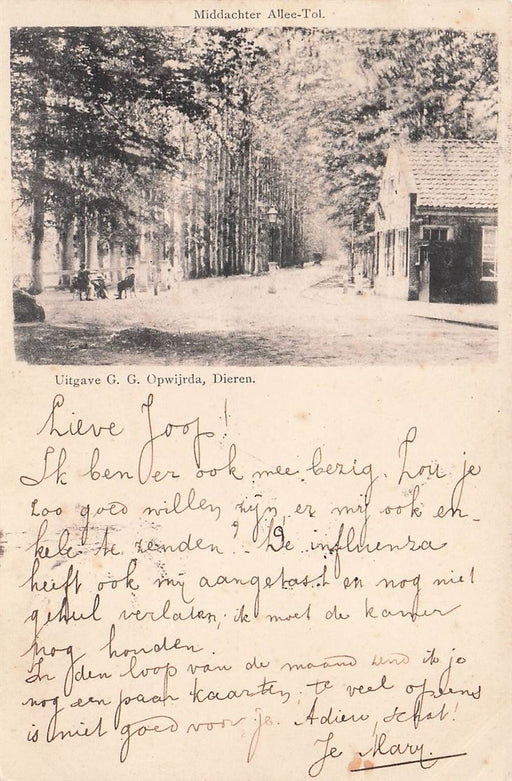 Middachter Allee-Tol.
Uitgave G. G. Opwijrda, Dieren.
Lieve Joop!
Ik ben er ook mee bezig. Zou je
zoo goed willen zijn er mij ook en-
kele te zenden? De influenza
heeft ook mij aangetast en nog niet
geheel verlaten; ik moet de kamer
nog houden.
In den loop van de maand zend ik je
nog een paar kaarten; te veel opeens
is niet goed voor je. Adieu, schat!
Je Mary.